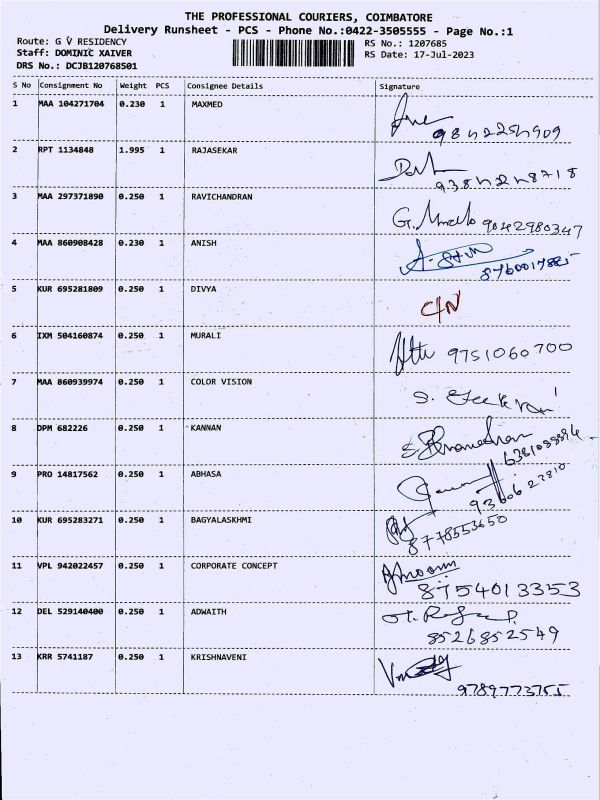 THE PROFESSIONAL COURIERS, COIMBATORE
Delivery Runsheet - PCS - Phone No.:0422-3505555 - Page No.:1
Route: G V RESIDENCY RS No.: 1207685
Staff: DOMINIC XAIVER RS Date: 17-Jul-2023
DRS No.: DCJB120768501
S No Consignment No Weight PCS Consignee Details Signature
1 MAA 104271704 0.230 1 MAXMED
2 RPT 1134848 1.995 1 RAJASEKAR
3 MAA 297371890 0.250 1 RAVICHANDRAN
9042980347
4 MAA 860908428 0.230 1 ANISH
5 KUR 695281809 0.250 1 DIVYA
6 IXM 504160874 0.250 1 MURALI
9751060700
7 MAA 860939974 0.250 1 COLOR VISION
8 DPM 682226 0.250 1 KANNAN
9 PRO 14817562 0.250 1 ABHASA
10 KUR 695283271 0.250 1 BAGYALASKHMI
8778553650
11 VPL 942022457 0.250 1 CORPORATE CONCEPT
8754013353
12 DEL 529140400 0.250 1 ADWAITH
8526852549
13 KRR 5741187 0.250 1 KRISHNAVENI
9789773755